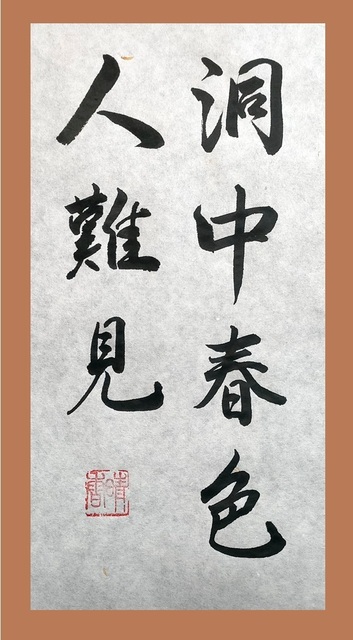 洞中春色
人難見